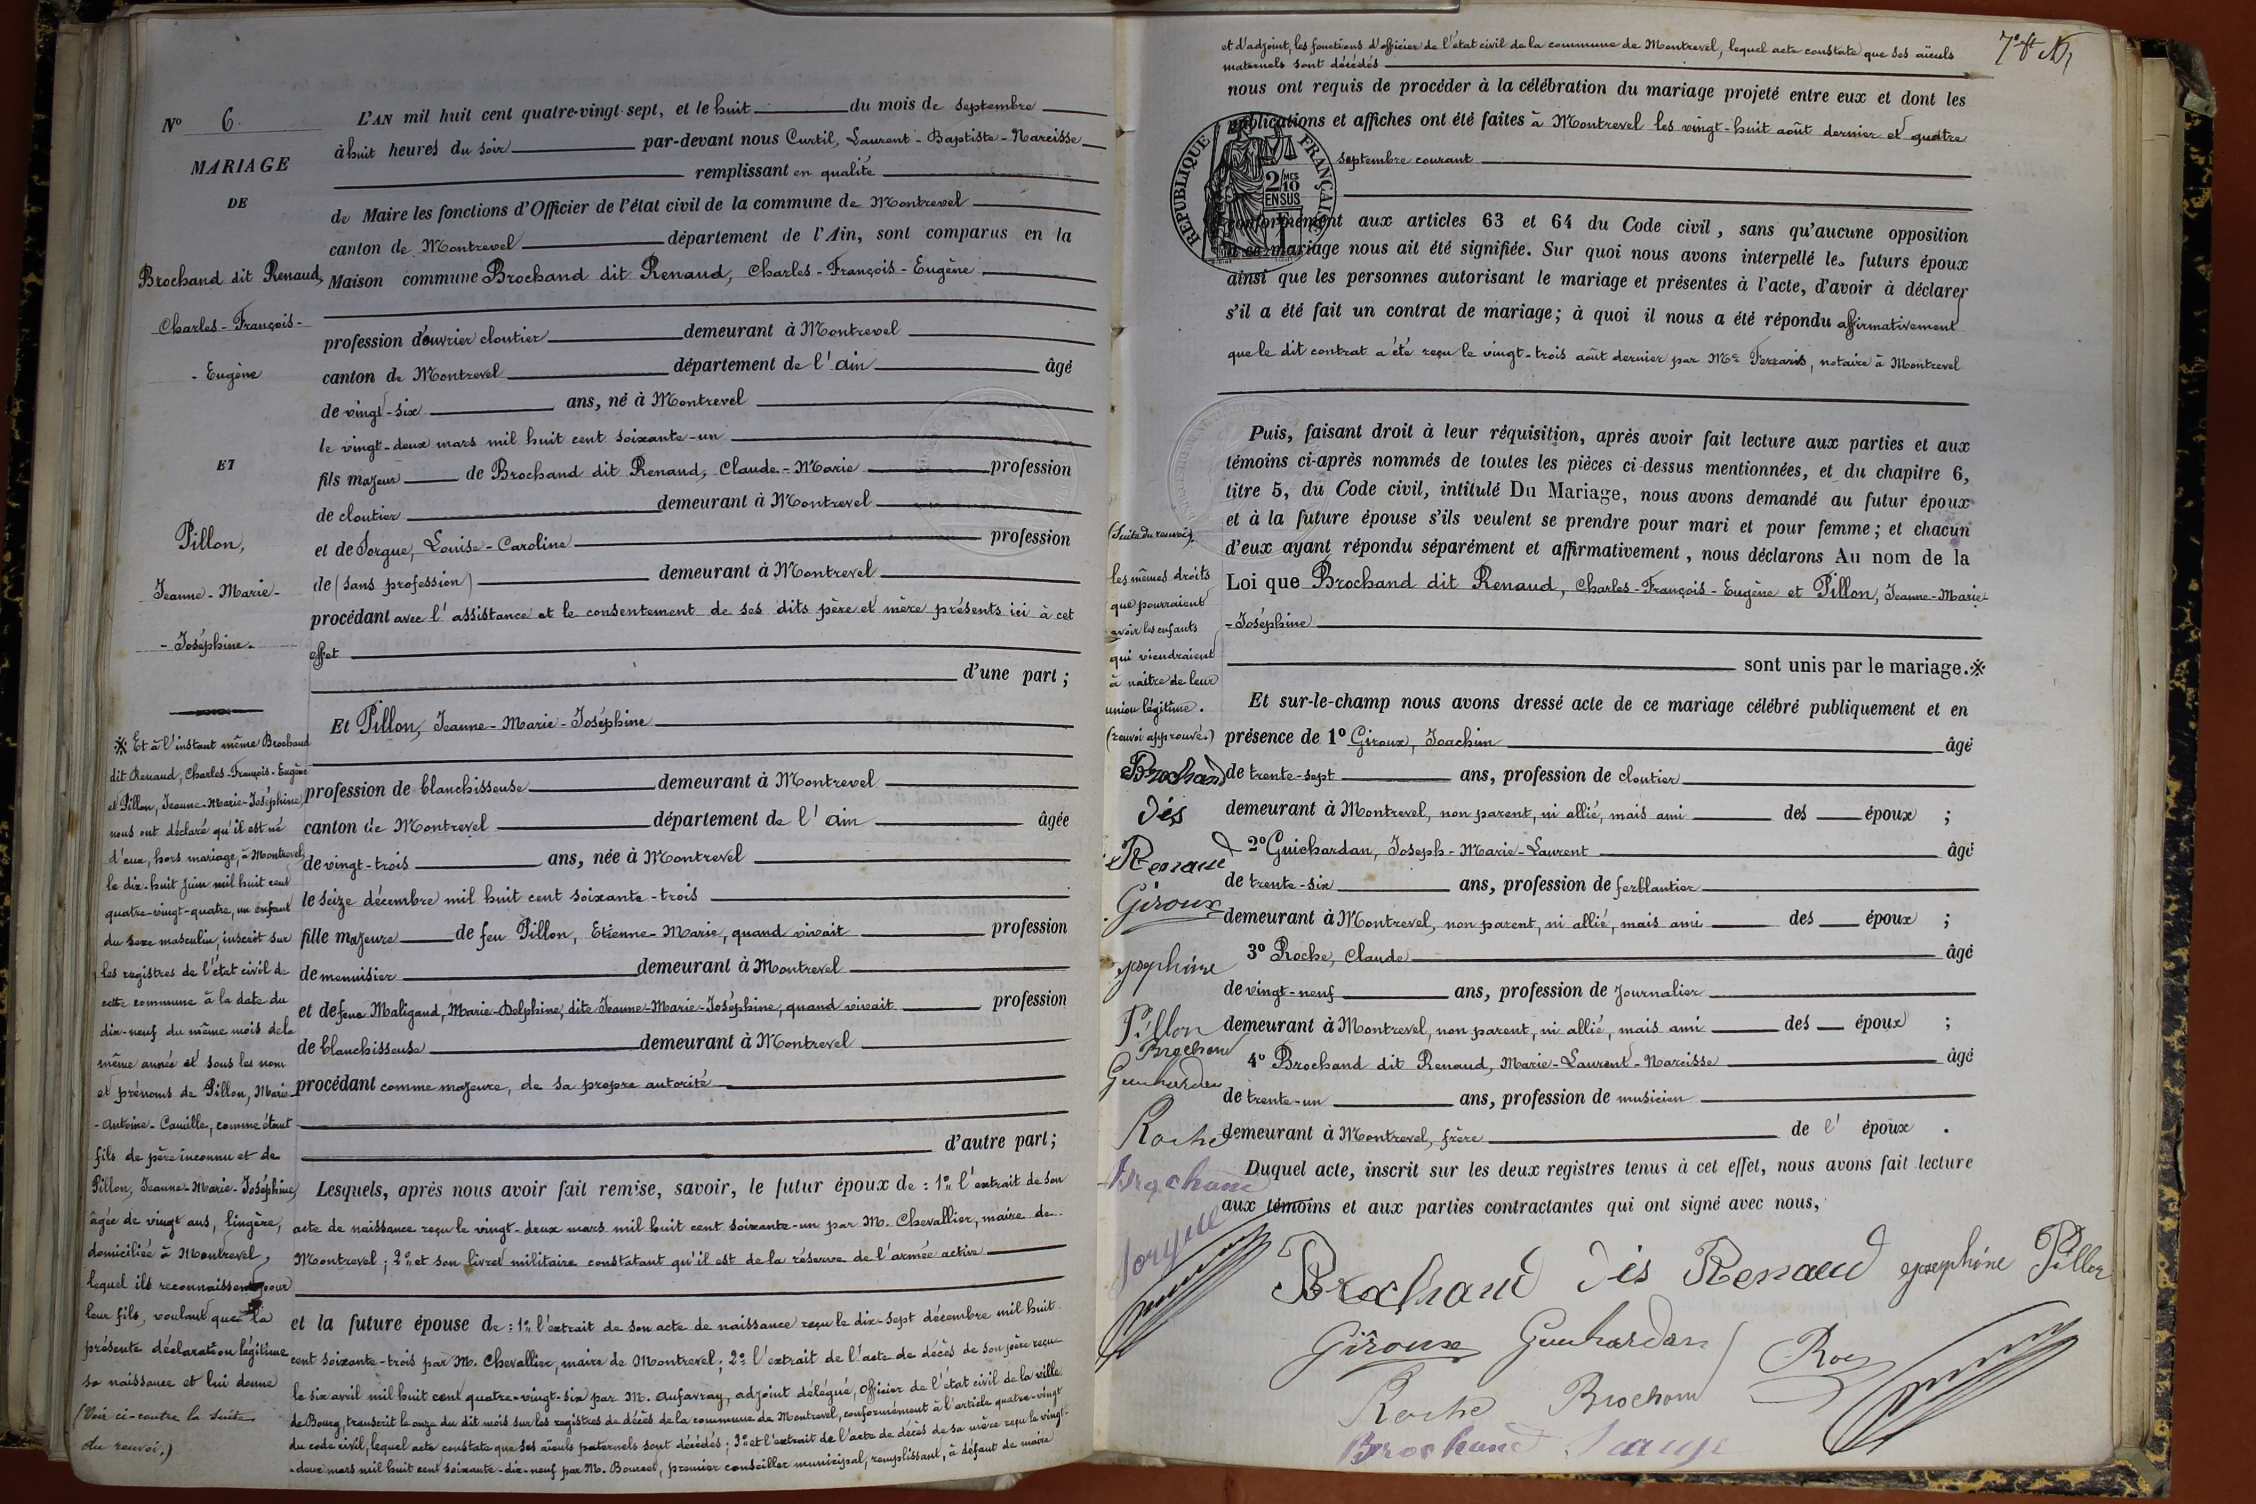 N° 6.
MARIAGE
DE
Brochand dit Renaud,
Charles-François-
-Eugène
ET
Pillon,
Jeanne-Marie-
-Joséphine.
※ Et à l'instant même Brochand
dit Renaud, Charles-François-Eugène
et Pillon, Jeanne-Marie-Joséphine,
nous ont déclaré qu'il est né
d'eux, hors mariage, à Montrevel,
le dix-huit juin mil huit cent
quatre-vingt-quatre, un enfant
du sexe masculin, inscrit sur
les registres de l'état civil de
cette commune à la date du
dix-neuf du même mois de la
même année et sous les nom
et prénoms de Pillon, Marie-
-Antoine-Camille, comme étant
fils de père inconnu et de
Pillon, Jeanne-Marie-Joséphine,
âgée de vingt ans, lingère,
domiciliée à Montrevel,
lequel ils reconnaissent pour
leur fils, voulant que la
présente déclaration légitime
sa naissance et lui donne
(Voir ci-contre la suite
du renvoi.)
L'AN mil huit cent quatre-vingt-sept, et le huit du mois de septembre
à huit heures du soir par-devant nous Curtil, Laurent-Baptiste-Narcisse
remplissant en qualité
de Maire les fonctions d'Officier de l'état civil de la commune de Montrevel
canton de Montrevel département de l'Ain, sont comparus en la
Maison commune Brochand dit Renaud, Charles-François-Eugène
profession d'ouvrier cloutier demeurant à Montrevel
canton de Montrevel département de l'Ain âgé
de vingt-six ans, né à Montrevel
le vingt-deux mars mil huit cent soixante-un
fils majeur de Brochand dit Renaud, Claude-Marie profession
de cloutier demeurant à Montrevel
et de Jorgue, Louise-Caroline profession
de (sans profession) demeurant à Montrevel
procédant avec l'assistance et le consentement de ses dits père et mère présents ici à cet
effet
d'une part ;
Et Pillon, Jeanne-Marie-Joséphine
profession de blanchisseuse demeurant à Montrevel
canton de Montrevel département de l'Ain âgée
de vingt-trois ans, née à Montrevel
le seize décembre mil huit cent soixante-trois
fille majeure de feu Pillon, Etienne-Marie, quand vivait profession
de menuisier demeurant à Montrevel
et de feue Maligand, Marie-Delphine, dite Jeanne-Marie-Joséphine, quand vivait profession
de blanchisseuse demeurant à Montrevel
procédant comme majeure, de sa propre autorité
d'autre part ;
Lesquels, après nous avoir fait remise, savoir, le futur époux de : 1° l'extrait de son
acte de naissance reçu le vingt-deux mars mil huit cent soixante-un par M. Chevallier, maire de
Montrevel ; 2° et son livret militaire constatant qu'il est de la réserve de l'armée active
et la future épouse de : 1° l'extrait de son acte de naissance reçu le dix-sept décembre mil huit
cent soixante-trois par M. Chevallier, maire de Montrevel ; 2° l'extrait de l'acte de décès de son père reçu
le six avril mil huit cent quatre-vingt-six par M. Aufavray, adjoint délégué, Officier de l'état civil de la ville
de Bourg, transcrit le onze du dit mois sur les registres de décès de la commune de Montrevel, conformément à l'article quatre-vingt
du code civil, lequel acte constate que ses aïeuls paternels sont décédés ; 3° et l'extrait de l'acte de décès de sa mère reçu le vingt-
-deux mars mil huit cent soixante-dix-neuf par M. Bourcet, premier conseiller municipal, remplissant, à défaut de maire
et d'adjoint, les fonctions d'officier de l'état civil de la commune de Montrevel, lequel acte constate que ses aïeuls
maternels sont décédés
nous ont requis de procéder à la célébration du mariage projeté entre eux et dont les
publications et affiches ont été faites à Montrevel les vingt-huit août dernier et quatre
septembre courant
RÉPUBLIQUE FRANÇAISE
2 MES 10
EN SUS
conformément aux articles 63 et 64 du Code civil, sans qu'aucune opposition
à ce mariage nous ait été signifiée. Sur quoi nous avons interpellé les futurs époux
ainsi que les personnes autorisant le mariage et présentes à l'acte, d'avoir à déclarer
s'il a été fait un contrat de mariage ; à quoi il nous a été répondu affirmativement
que le dit contrat a été reçu le vingt-trois août dernier par Me Ferraris, notaire à Montrevel
Puis, faisant droit à leur réquisition, après avoir fait lecture aux parties et aux
témoins ci-après nommés de toutes les pièces ci-dessus mentionnées, et du chapitre 6,
titre 5, du Code civil, intitulé Du Mariage, nous avons demandé au futur époux
et à la future épouse s'ils veulent se prendre pour mari et pour femme ; et chacun
d'eux ayant répondu séparément et affirmativement, nous déclarons Au nom de la
Loi que Brochand dit Renaud, Charles-François-Eugène et Pillon, Jeanne-Marie-
-Joséphine
sont unis par le mariage.※
Et sur-le-champ nous avons dressé acte de ce mariage célébré publiquement et en
présence de 1° Giroux, Joachim âgé
de trente-sept ans, profession de cloutier
demeurant à Montrevel, non parent, ni allié, mais ami des époux ;
2° Guichardan, Joseph-Marie-Laurent âgé
de trente-six ans, profession de ferblantier
demeurant à Montrevel, non parent, ni allié, mais ami des époux ;
3° Roche, Claude âgé
de vingt-neuf ans, profession de journalier
demeurant à Montrevel, non parent, ni allié, mais ami des époux ;
4° Brochand dit Renaud, Marie-Laurent-Narcisse âgé
de trente-un ans, profession de musicien
demeurant à Montrevel, frère de l'époux.
Duquel acte, inscrit sur les deux registres tenus à cet effet, nous avons fait lecture
aux témoins et aux parties contractantes qui ont signé avec nous,
(Suite du renvoi).
les mêmes droits
que pourraient
avoir les enfants
qui viendraient
à naître de leur
union légitime.
(renvoi approuvé.)
Brochand
dis
Renaud
Giroux
josephine
Pillon
Brochand
Guichardan
Roche
Brochand
Jorgue
Brochand dis Renaud josephine Pillon
Giroux Guichardan
Roche Brochand
Brochand